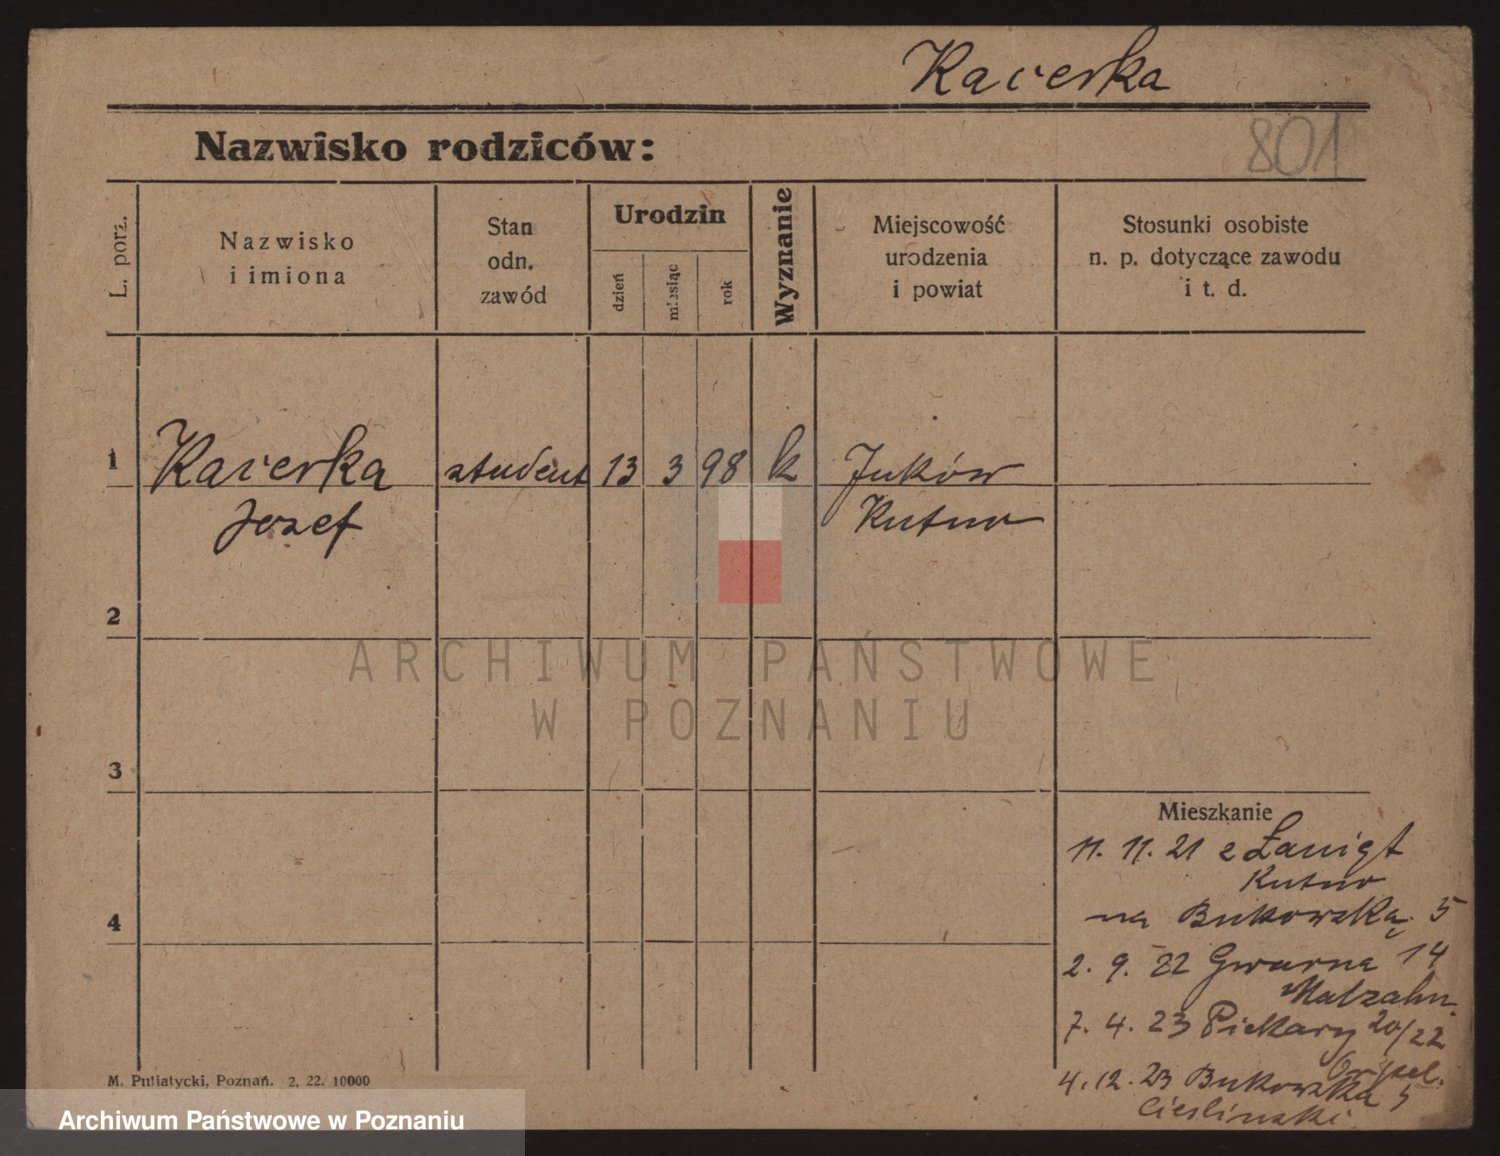 Kacerka
Nazwisko rodziców:
801
L. porz.
Nazwisko
i imiona
Stan
odn.
zawód
Urodzin
dzień
miesiąc
rok
Wyznanie
Miejscowość
urodzenia
i powiat
Stosunki osobiste
n. p. dotyczące zawodu
i t. d.
1 Kacerka student 13 3 98 k Juków
Jozef Kutno
2
ARCHIWUM PAŃSTWOWE
W POZNANIU
3
Mieszkanie
11. 11. 21 z
Kutno
4
na Bukowską. 5
2. 9. 22 Gwarna 14
Malzahn.
7. 4. 23 Piekary 20/22
4. 12. 23 Bukowska 5
Cieslinski
M. Putiatycki, Poznań. 2. 22. 10000
Archiwum Państwowe w Poznaniu